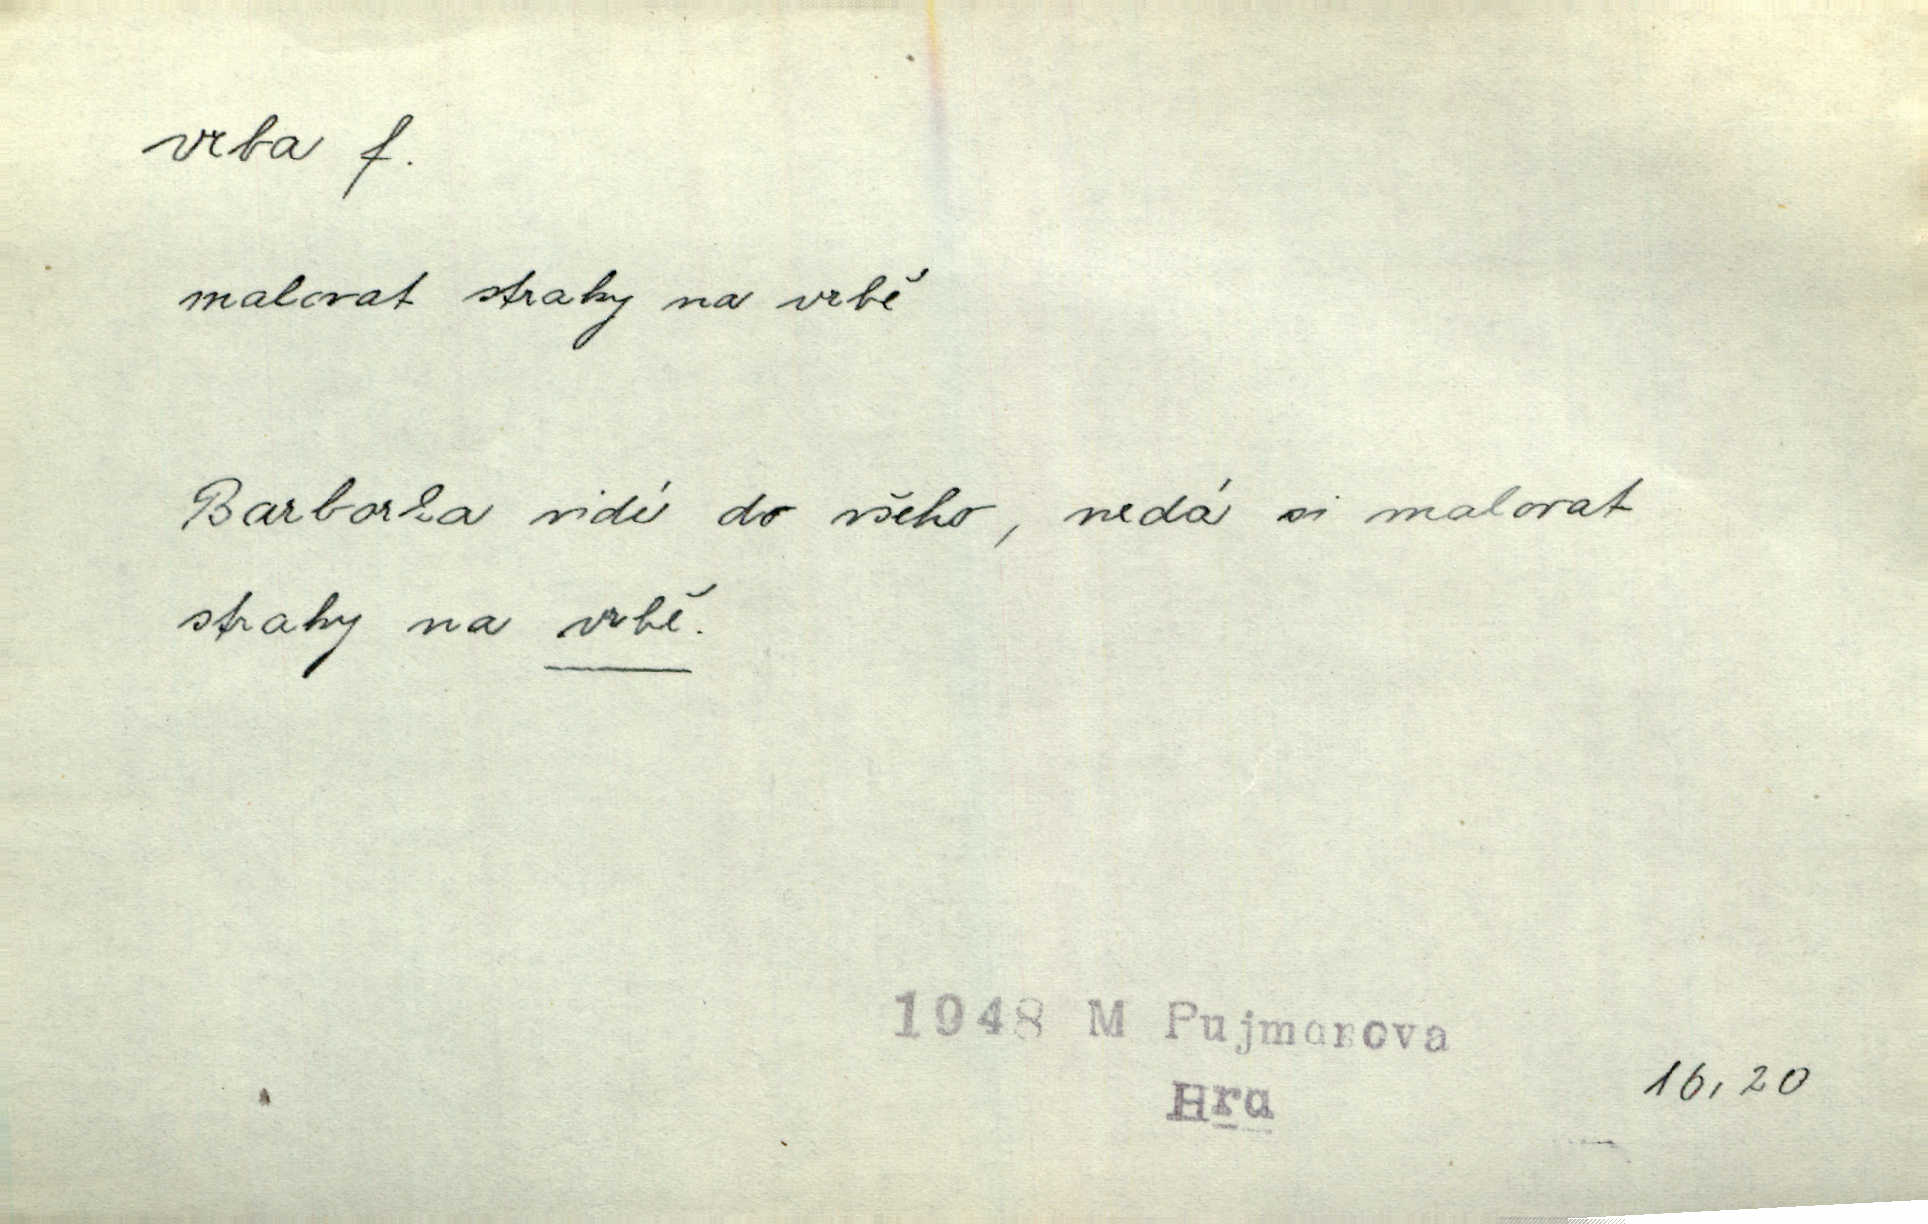 vrba f.
malovat strahy na vrbě
Barborka vidí do všeho, nedá si malovat
strahy na vrbě.
1948 M Pujmanova
Hra
16, 20